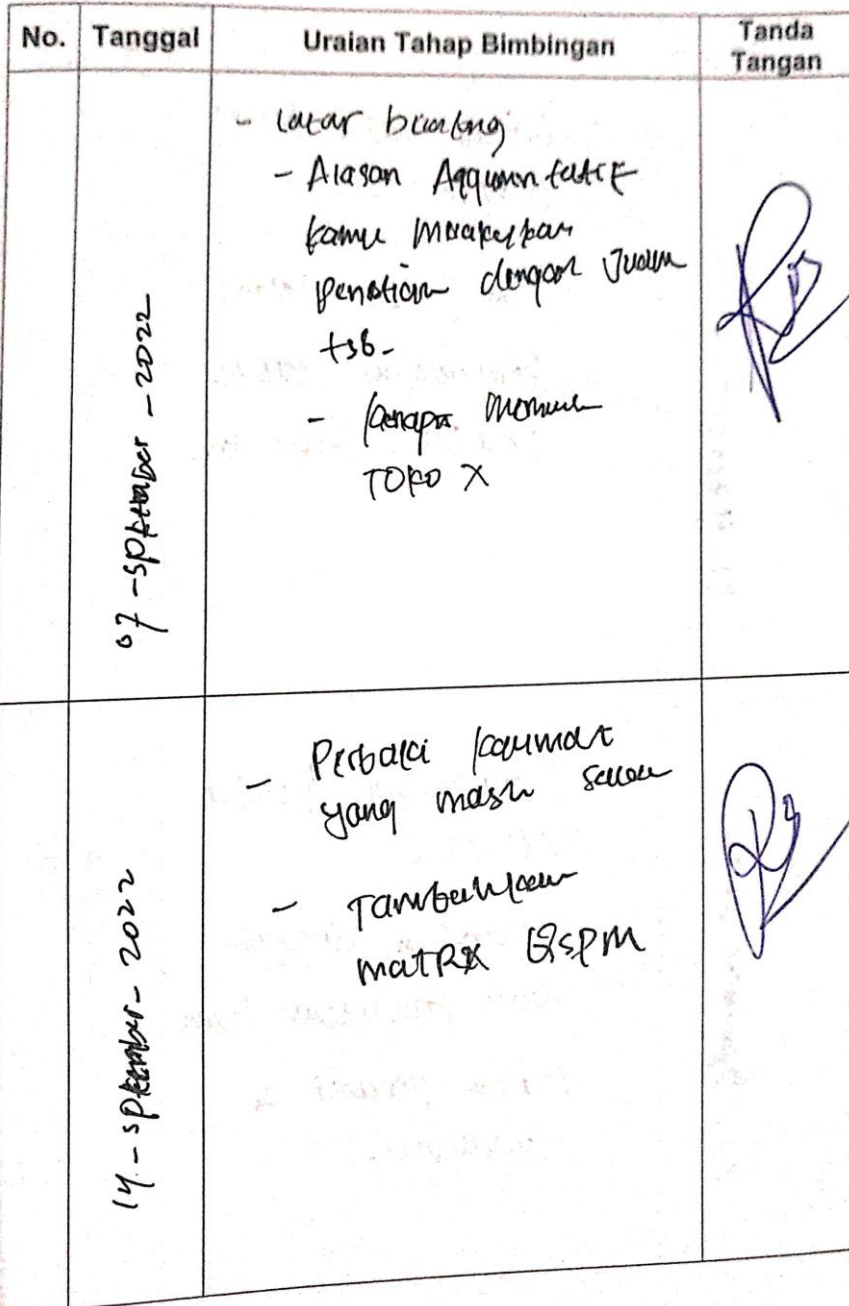 No. Tanggal Uraian Tahap Bimbingan Tanda Tangan
07 - September - 2022
- Latar belakang
- Alasan Argumentatif
kamu melakukan
penelitian dengan Judul
tsb.
- Kenapa memilih
TOKO X
14 - September - 2022
- Perbaiki kalimat
yang masih salah
- Tambahkan
matRix QSPM